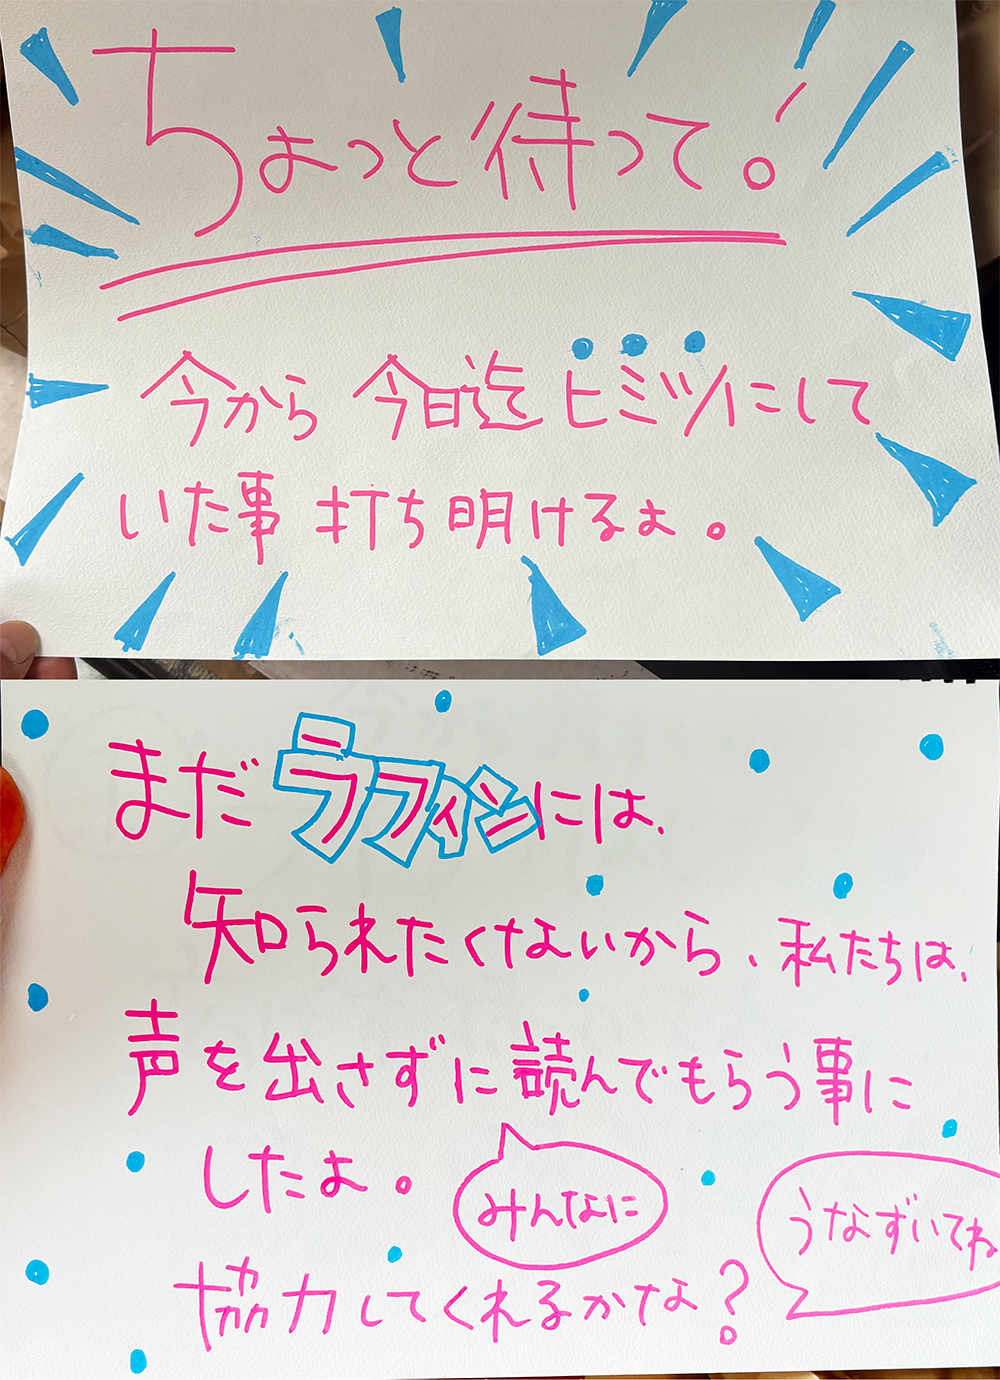 ちょっと待って!
今から 今日迄 ヒミツにして
いた事 打ち明けるよ。
まだ ラフィンには、
知られたくないから、私たちは、
声を出さずに 読んでもらう事に
したよ。
みんなに
うなずいてね
協力してくれるかな?